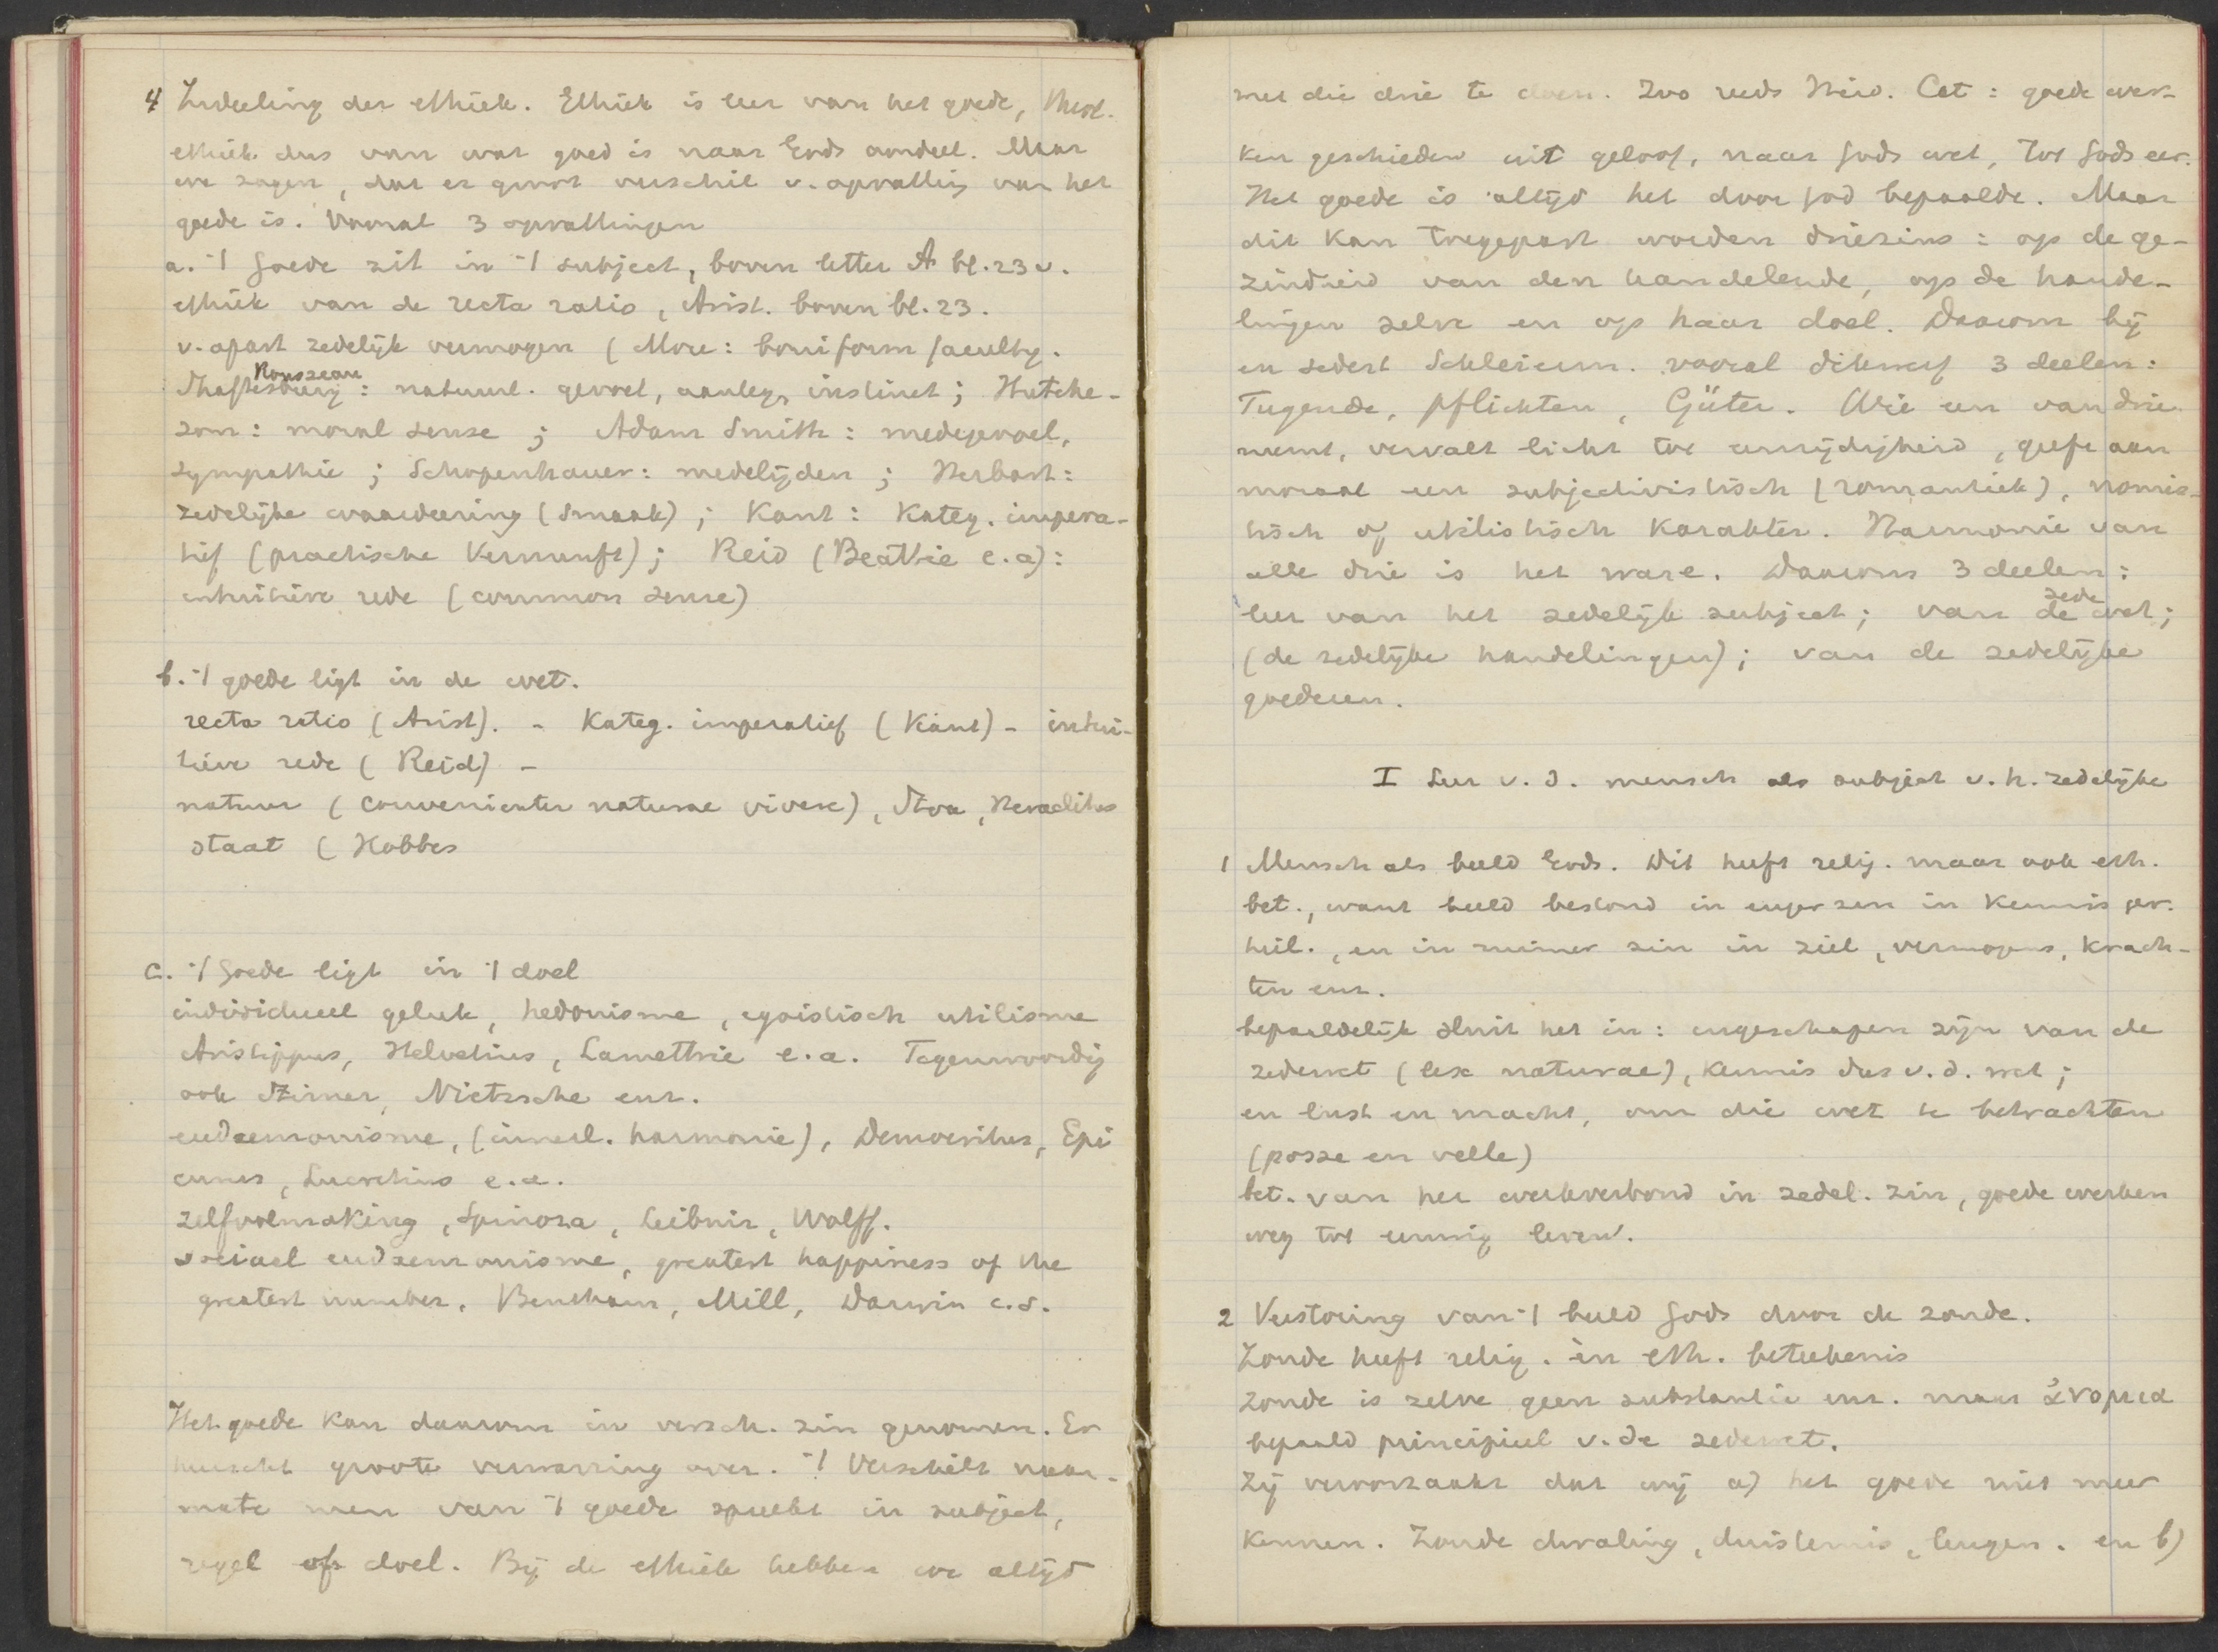 4 Indeeling der ethiek. Ethiek is leer van het goede, theol.
ethiek dus van wat goed is naar Gods oordeel. Maar
we zagen, dat er groot verschil v. opvatting van het
goede is. Vooral 3 opvattingen
a. 't Goede zit in 't subject, boven letter A bl. 23 v.
ethiek van de recta ratio, Arist. boven bl. 23.
v. apart zedelijk vermogen (More: boniform faculty.
Rousseau
Shaftesbury: natuurl. gevoel, aanleg, instinct; Hutche-
son: moral sense; Adam Smith: medegevoel,
sympathie; Schopenhauer: medelijden; Herbart:
zedelijke waardeering (smaak); Kant: Kateg. impera-
tief (practische Vernunft); Reid (Beattie e.a):
intuitieve rede (common sense)
b. 't goede ligt in de wet.
recta ratio (Arist). - Kateg. imperatief (Kant) - intui-
tieve rede (Reid) -
natuur (convenienter naturae vivere), Stoa, Heraclitus
staat (Hobbes
c. 't Goede ligt in 't doel
individueel geluk, hedonisme, egoistisch utilisme
Aristippus, Helvetius, Lamettrie e.a. Tegenwoordig
ook Stirner, Nietzsche enz.
eudaemonisme, (innerl. harmonie), Democritus, Epi
curus, Lucretius e.a.
zelfvolmaking, Spinoza, Leibniz, Wolff.
sociael eudaemonisme, greatest happiness of the
greatest number. Bentham, Mill, Darwin c.s.
Het goede kan daarom in versch. zin genomen. Er
heerscht groote verwarring over. 't Verschilt naar-
mate men van 't goede spreekt in subject,
regel of doel. Bij de ethiek hebben we altijd
met die drie te doen. Zoo reeds Heid. Cat: goede wer-
ken geschieden uit geloof, naar Gods wet, tot Gods eer.
Het goede is altijd het door God bepaalde. Maar
dit kan toegepast worden driezins: op de ge-
zindheid van den handelende, op de hande-
lingen zelve en op haar doel. Daarom bij
en sedert Schleierm. vooral dikwerf 3 deelen:
Tugende, Pflichten, Güter. Wie een van drie
neemt, vervalt licht tot eenzijdigheid, geeft aan
moraal een subjectivistisch (romantiek), nomis-
tisch of utilistisch karakter. Harmonie van
alle drie is het ware. Daarom 3 deelen:
leer van het zedelijk subject; van de zedewet;
(de zedelijke handelingen); van de zedelijke
goederen.
I Leer v. d. mensch als subject v. h. zedelijke
1 Mensch als beeld Gods. Dit heeft relig. maar ook eth.
bet., want beeld bestond in enger zin in kennis ger.
heil., en in ruimer zin in ziel, vermogens, krach-
ten enz.
bepaaldelijk sluit het in: ingeschapen zijn van de
zedewet (lex naturae), kennis dus v. d. wet;
en lust en macht, om die wet te betrachten
(posse en velle)
bet. van het werkverbond in zedel. zin, goede werken
weg tot eeuwig leven.
2 Verstoring van 't beeld Gods door de zonde.
Zonde heeft relig. en eth. beteekenis
Zonde is zelve geen substantie enz. maar ἀνομια
bepaald principieel v. de zedewet.
Zij veroorzaakt dat wij a) het goede niet meer
kennen. Zonde dwaling, duisternis, leugen. en b)